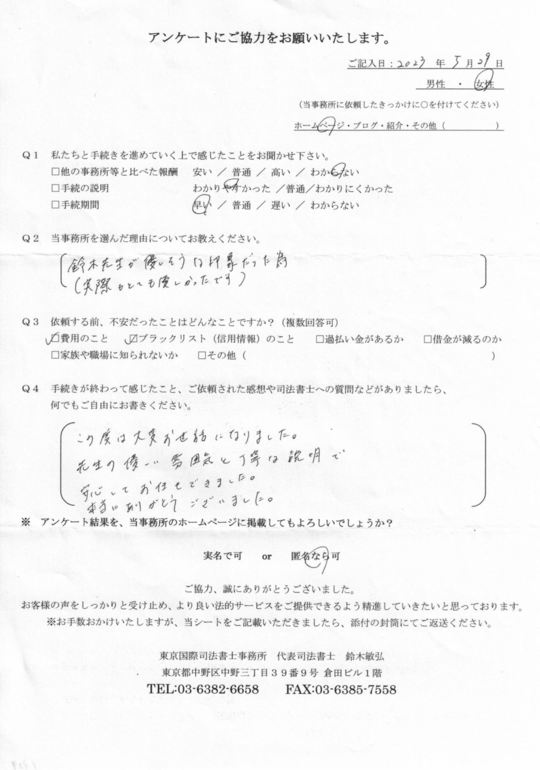 アンケートにご協力をお願いいたします。
ご記入日：2023 年 5 月 29 日
男性 ・ 女性
（当事務所に依頼したきっかけに○を付けてください）
ホームページ・ブログ・紹介・その他（　　　　　）
Q１ 私たちと手続きを進めていく上で感じたことをお聞かせ下さい。
□他の事務所等と比べた報酬 安い ／ 普通 ／ 高い ／ わからない
□手続の説明 わかりやすかった ／普通／わかりにくかった
□手続期間 早い ／ 普通 ／ 遅い ／ わからない
Q２ 当事務所を選んだ理由についてお教えください。
鈴木先生が優しそうな印象だった為
(実際もとても優しかったです)
Q３ 依頼する前、不安だったことはどんなことですか？（複数回答可）
☑費用のこと ☑ブラックリスト（信用情報）のこと □過払い金があるか □借金が減るのか
□家族や職場に知られないか □その他（　　　　　）
Q４ 手続きが終わって感じたこと、ご依頼された感想や司法書士への質問などがありましたら、
何でもご自由にお書きください。
この度は大変お世話になりました。
先生の優しい雰囲気と丁寧な説明で
安心してお任せできました。
本当にありがとうございました。
※ アンケート結果を、当事務所のホームページに掲載してもよろしいでしょうか？
実名で可 or 匿名なら可
ご協力、誠にありがとうございました。
お客様の声をしっかりと受け止め、より良い法的サービスをご提供できるよう精進していきたいと思っております。
※お手数おかけいたしますが、当シートをご記載いただきましたら、添付の封筒にてご返送ください。
東京国際司法書士事務所 代表司法書士 鈴木敏弘
東京都中野区中野三丁目３９番９号 倉田ビル１階
TEL:03-6382-6658 FAX:03-6385-7558